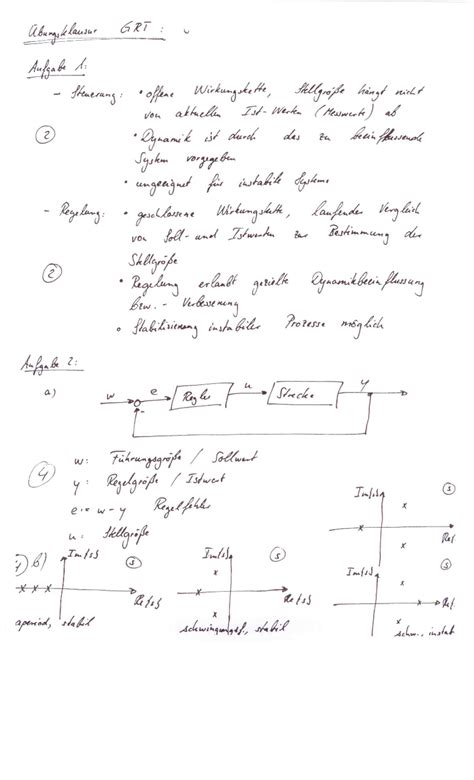 Übungsklausur GRT:
Aufgabe 1:
- Steuerung: • offene Wirkungskette, Stellgröße hängt nicht
von aktuellen Ist-Werten (Messwerte) ab
② • Dynamik ist durch das zu beeinflussende
System vorgegeben
• ungeeignet für instabile Systeme
- Regelung: • geschlossene Wirkungskette, laufender Vergleich
von Soll- und Istwerten zur Bestimmung der
Stellgröße
② • Regelung erlaubt gezielte Dynamikbeeinflussung
bzw. - Verbesserung
• Stabilisierung instabiler Prozesse möglich
Aufgabe 2:
a) w e Regler u Strecke y
-
w: Führungsgröße / Sollwert
④ y: Regelgröße / Istwert
e = w - y Regelfehler
u: Stellgröße
Im{s} ⓢ
Re{
b) Im{s} ⓢ
Re{s}
aperiod, stabil
Im{s} ⓢ
Re{s}
schwingungsf., stabil
Im{s} ⓢ
Re{
schw., instab